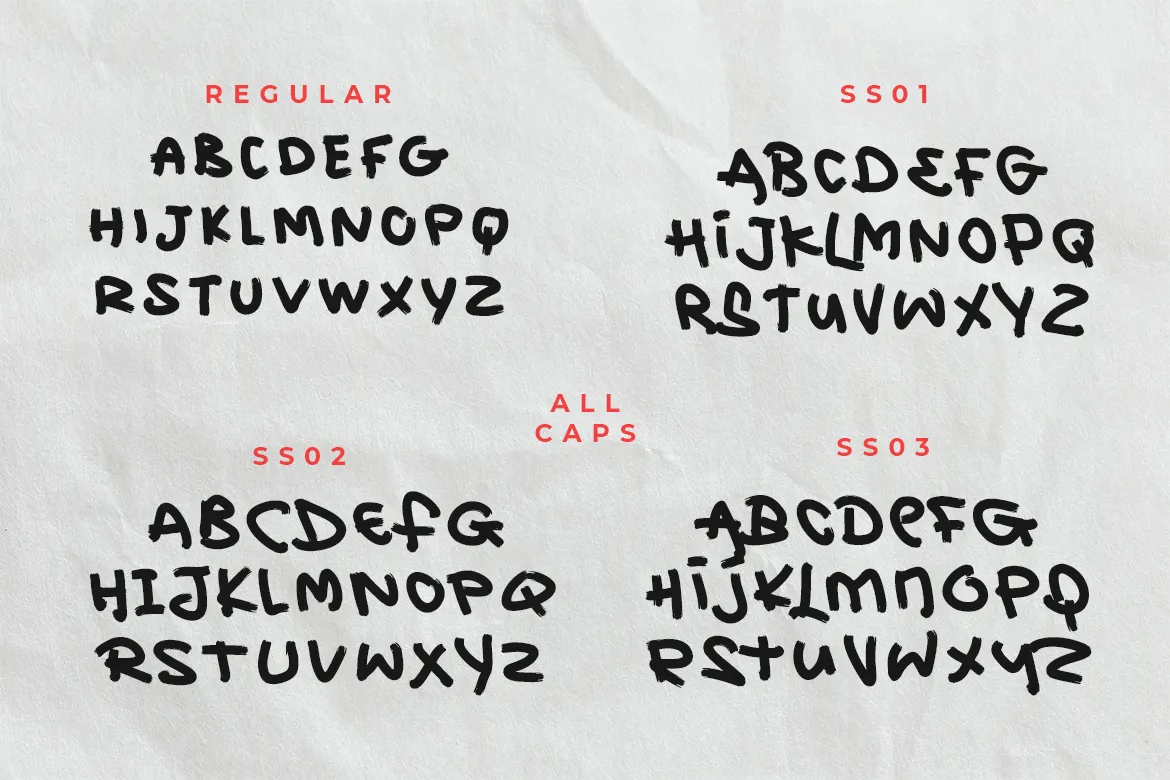 REGULAR
ABCDEFG
HIJKLMNOPQ
RSTUVWXYZ
SS01
ABCDEFG
HiJKLMNOPQ
RSTUVWXYZ
ALL
CAPS
SS02
ABCDEFG
HIJKLMNOPQ
RSTUVWXYZ
SS03
ABCDeFG
HijKLmnOPQ
RStuVWXYZ